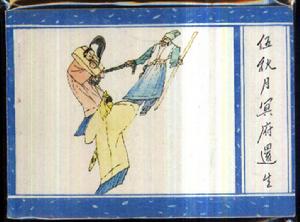 伍秋月冥府還生